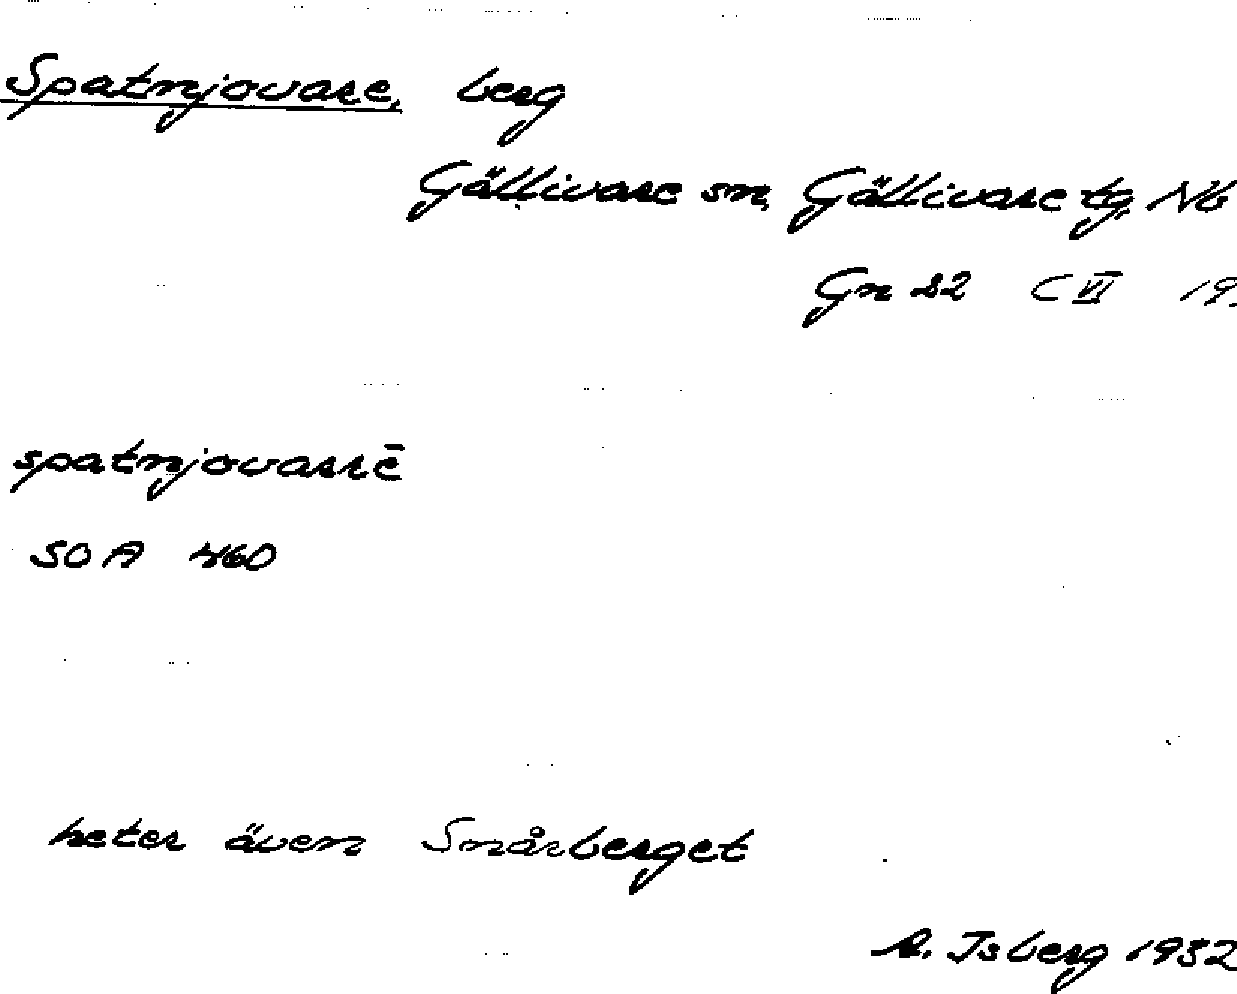 Spatnjovare, berg
Gällivare sn, Gällivare tg, Nb
Gn 22 C VI 19
spatnjovarrē
SOA 460
heter även Snårberget
A. Isberg 1932